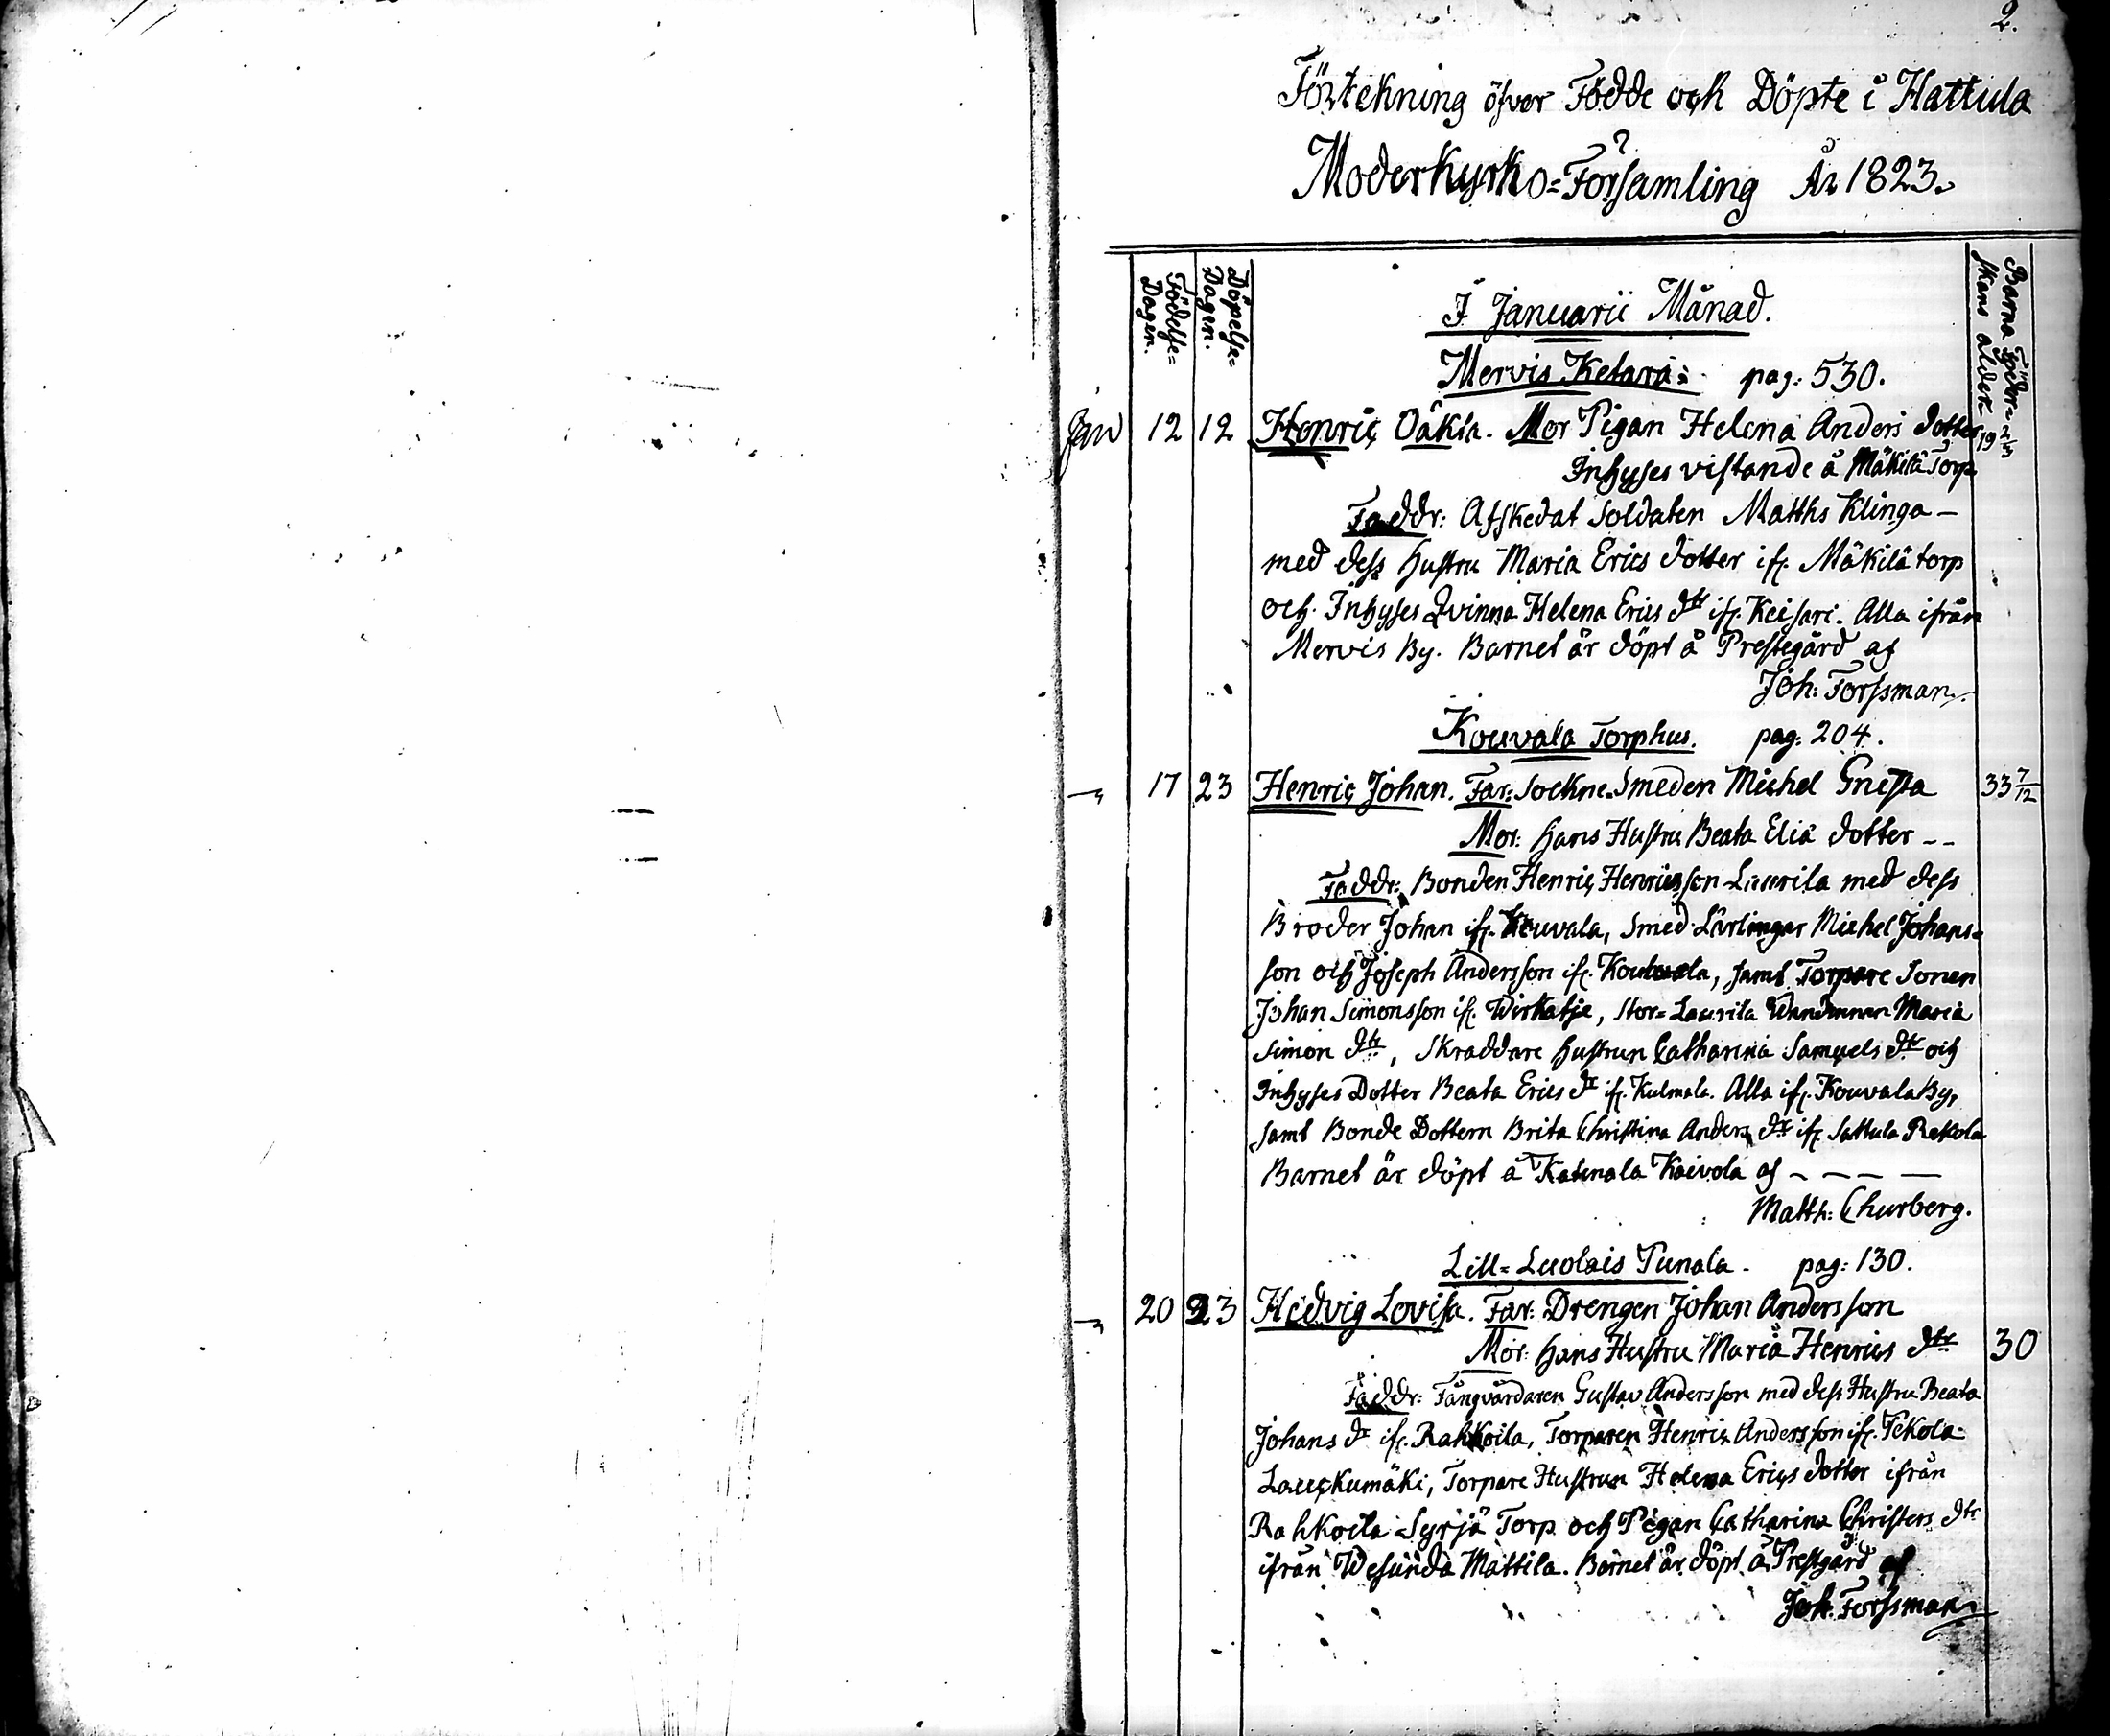 2.
Förtekning öfver Födde och Döpte i Hattula
Moderkyrko=Församling År 1823.
Födelse=
Dagen.
Döpelse=
Dagen.
Barna Föder=
skans ålder
I Januarii Månad.
Mervis Ketara: pag: 530.
Jan 12 12 Henric Oäkta. Mor Pigan Helena Anders dotter 19 2/3
Inhyses vistande å Mäkilä Torp
Faddr: Afskedat Soldaten Matths Klinga –
med dess hustru Maria Erics dotter ifr. Mäkilä torp
och Inhyses Qvinna Helena Erics dtr ifr. Keisari. Alla ifrån
Mervis By. Barnet är döpt å Prestegård af
Joh: Forssman.
Kouvala Torphus. pag: 204.
17 23 Henric Johan. Far: Sockne Smeden Michel Gnesta 33 7/12
Mor: hans Hustru Beata Eliä dotter --
Faddr: Bonden Henric Henricsson Laurila med dess
Broder Johan ifr. Kouvala, Smed Lärlingar Michel Johans=
son och Joseph Andersson ifr. Kouvala, samt Torpare Sonen
Johan Simonsson ifr. Wirkatje, Stor=Laurila Maria
Simon dtr, Skraddare hustrun Catharina Samuels dtr och
Inhyses Dotter Beata Erics dr ifr. Kulmala. Alla ifr. Kouvala By,
samt Bonde Dottern Brita Christina Anders dr ifr Sattula Rekola
Barnet är döpt å Katinala Kaivola af – – – –
Matth: Churberg.
Lill=Luolais Punala. pag: 130.
20 23 Hedvig Lovisa. Far: Drengen Johan Andersson
Mor: hans Hustru Maria Henrics dtr 30
Faddr: Fångvårdaren Gustav Andersson med dess Hustru Beata
Johans dr ifr. Rahkoila, Torparen Henric Andersson ifr. Pekola=
Lauckumäki, Torpare Hustrun Helena Erics dotter ifrån
Rahkoila Syrjä Torp och Pigan Catharina Christers dtr
ifrån Wesunda Mattila. Barnet är döpt å Prestgård af
Joh: Forssman